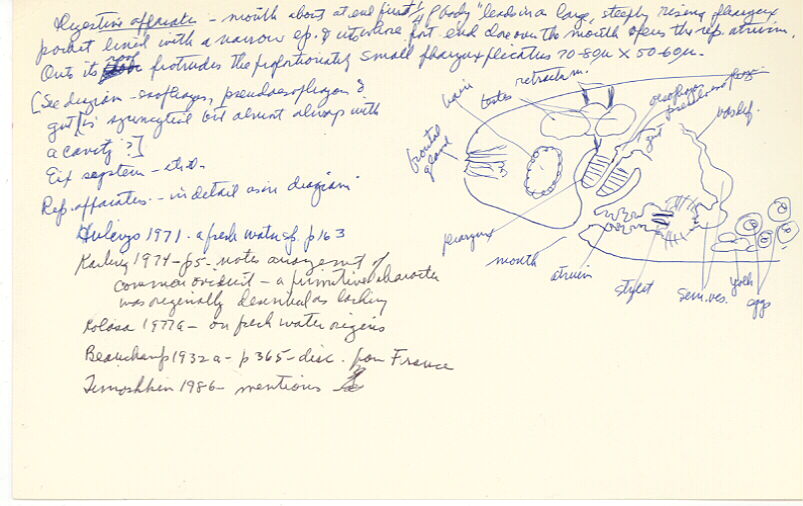 Digestive apparatus - mouth about at end first 1/4 of body "leads in a large, steeply rising pharynx
pocket lined with a narrow ep. & into whose front end close over the mouth opens the rep. atrium.
Outs its protrudes the proportionately small pharynx plicatus 70-80µ x 50-60µ.
[See diagram - esophagus, pseudoesophagus &
gut [is syncytial but almost always with
a cavity ?]
Ex system -
Rep. apparatus - in detail as in diagram
1971 - a fresh water sp. p163
Karling 1974 - p5 - notes arrangement of
common oviduct - a primitive character
was originally described as lacking
Kolasa 1977a - on fresh water origins
Beauchamp 1932a - p365 - disc. from France
Timoshkin 1986 - mentions
brain
testes
retract m.
oesophagus
pseudoesophagus
vas def.
gut
frontal
gland
pharynx
mouth
atrium
stylet
sem. ves.
yolk
eggs